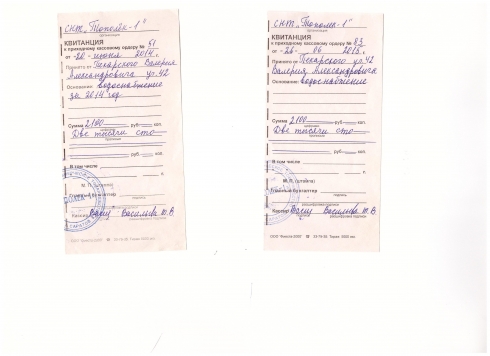 СНТ „Тополёк-1"
организация
КВИТАНЦИЯ
к приходному кассовому ордеру № 51
от «20» июня 2014 г.
Принято от Пекарского Валерия
Александровича ул. 42
Основание: водоснабжение
за 2014 год
Сумма 2100 руб. коп.
Две тысячи сто
прописью
руб. коп.
В том числе
г.
М.П. (штампа)
Главный бухгалтер
подпись
Кассир Васильева Т.В
СНТ „Тополёк-1"
организация
КВИТАНЦИЯ
к приходному кассовому ордеру № 93
от «26» 06 2015 г.
Принято от Пекарского ул. 42
Валерия Александровича
Основание: водоснабжение
Сумма 2100 руб. коп.
Две тысячи сто
прописью
руб. коп.
В том числе
г.
М.П. (штампа)
Главный бухгалтер
подпись
Кассир Васильева Т.В
расшифровка подписи